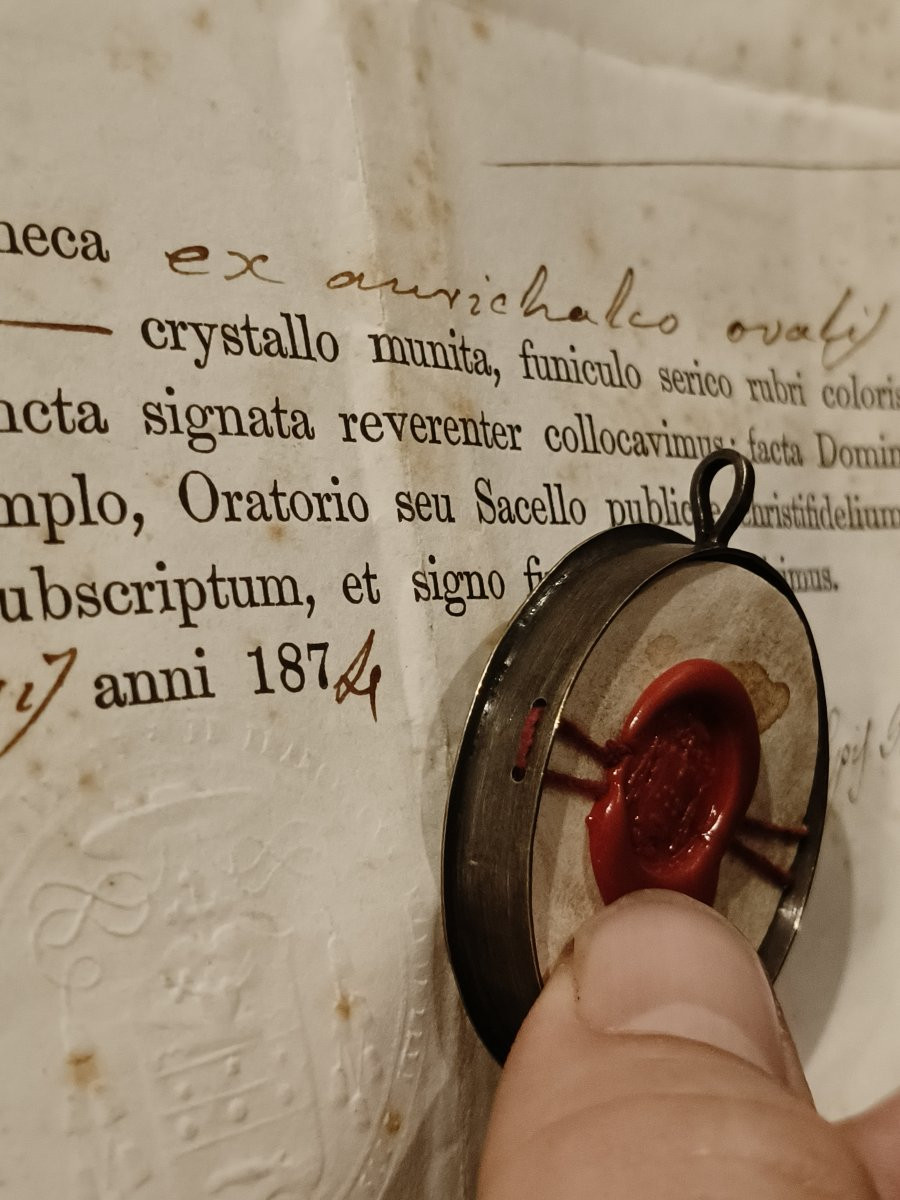 neca ex aurichalco ovalis
crystallo munita, funiculo serico rubri coloris
ncta signata reverenter collocavimus; facta Domin
mplo, Oratorio seu Sacello public christifidelium
ubscriptum, et signo imus.
anni 1874